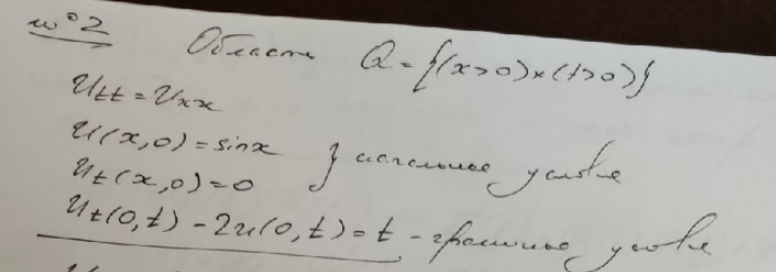 №2 Область Q = {(x>0)×(t>0)}
u_tt = u_xx
u(x,0) = sinx
u_t(x,0) = 0 } начальные условия
u_t(0,t) - 2u(0,t) = t - граничные условия